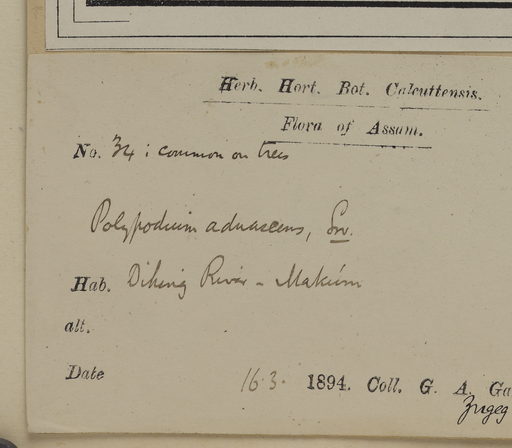 Herb. Hort. Bot. Calcuttensis.
Flora of Assam.
No. 34 : common on trees
Polypodium adnascens, Sw.
Hab. Dihing River - Makúm
alt.
Date 16.3. 1894. Coll. G. A. Ga